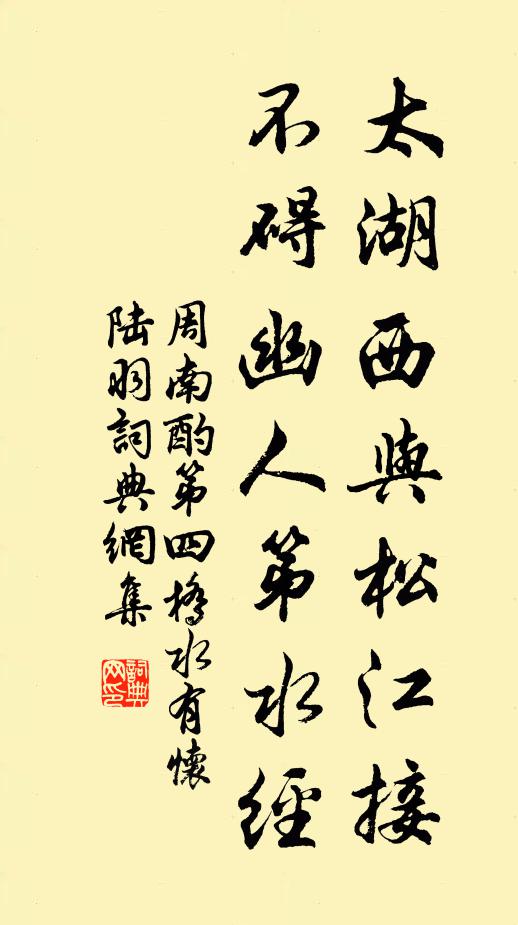 太湖西與松江接
不碍幽人第水經
周南酌第四橋水有懷
陸羽詞典網集
詞典网印